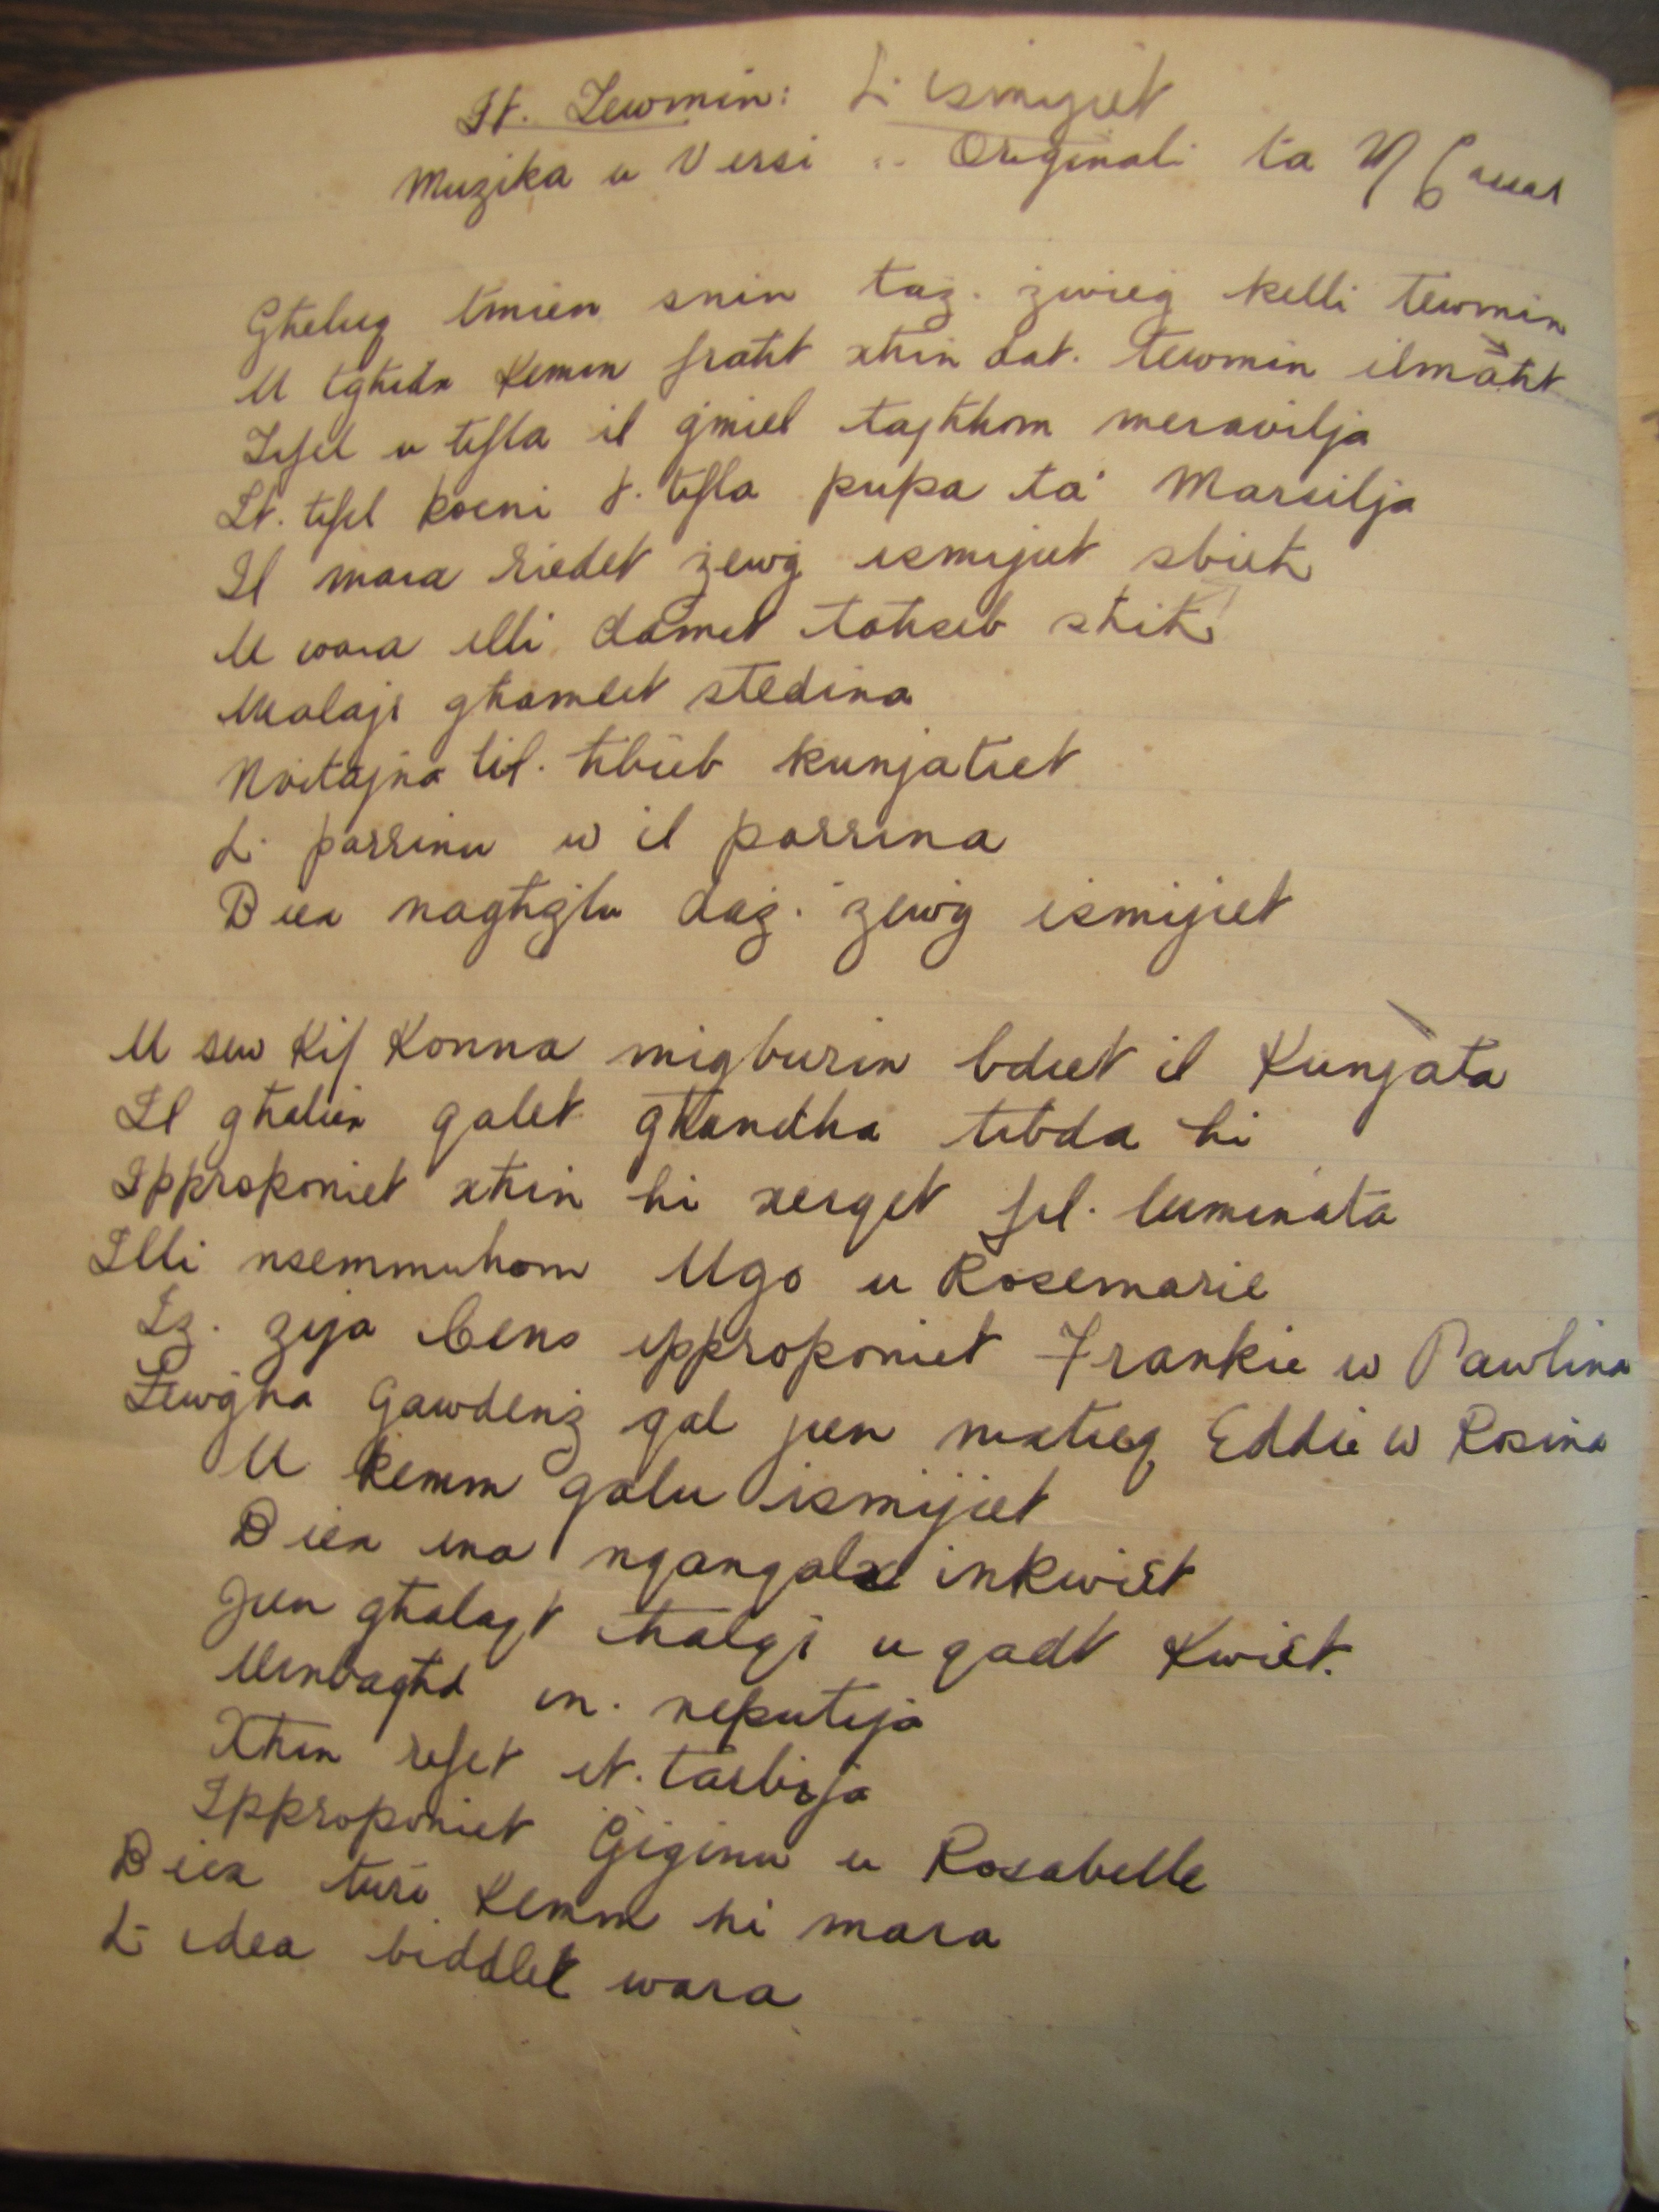 It. Tewmin: L. ismijiet
Muzika u Versi .. Originali ta
Għeluq tmien snin taż. żwieġ kelli tewmin
U tgħidx kemm fraħt xħin dat. tewmin ilmaħt
Tifel u tifla il ġmiel tagħhom meravilja
It. tifel koċni t. tifla pupa ta' Marsilja
Il mara riedet żewġ ismijiet sbieħ
U wara illi damet taħseb sħiħ
Malajr għamlet stedina
Nvitajna lil. ħbieb kunjatiet
L. parrinu w il parrina
Biex nagħżlu daż. żewġ ismijiet
U sew kif konna miġburin bdiet il Kunjata
Il għaliex qalet għandha tibda hi
Ipproponiet xħin hi xerqet fil. luminata
Illi nsemmuhom Ugo u Rosemarie
Iz. zija Ċens ipproponiet Frankie w Pawlina
Żewġha Gawdenz qal jien nixtieq Eddie w Rosina
U kemm qalu ismijiet
Biex ma nqanqalx inkwiet
Jien għalaqt ħalqi u qadt kwiet.
Minbagħd in. neputija
Xħin refet it. tarbija
Ipproponiet Ġiġinu u Rosabelle
Biex turi kemm hi mara
L- idea biddlet wara